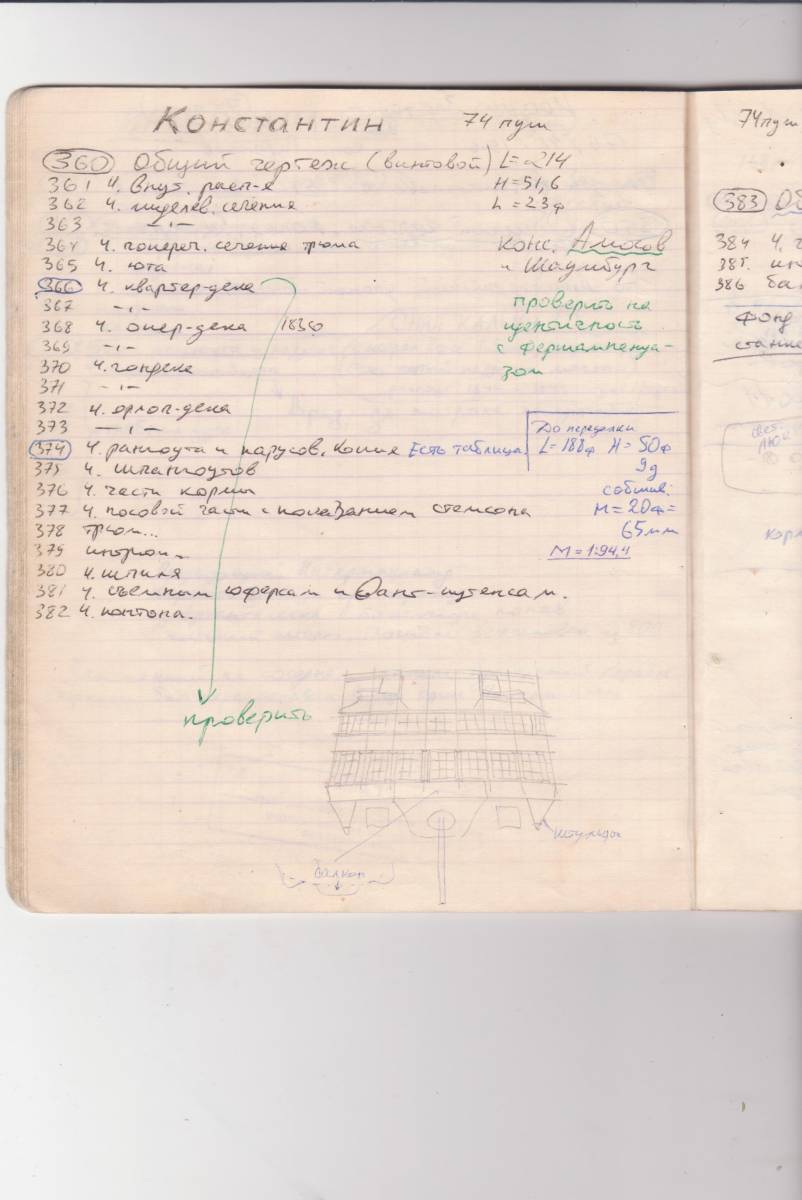 Константин 74 пуш
360 Общий чертеж (винтовой) L=~214
361 ч. внут. расп-я H=51,6
362 ч. мидслев. сечения h=23ф
363 –„–
364 ч. попереч. сечения трюма
365 ч. юта
конс. Амосов
и Шаумбург
366 ч. квартер-дека
367 –„–
368 ч. опер-дека 1836
369 –„–
370 ч. гондека
371 –„–
372 ч. орлоп-дека
373 –„–
проверить на
идентичность
с фершампенуа-
зом
374 ч. рангоута и парусов. Копия Есть таблица
375 ч. шпангоутов
376 ч. части кормы
377 ч. носовой части с показанием стемсона
378 трюм...
379 интрюм..
380 ч. шпиля
381 ч. съемным юферсам и вант-путенсам.
382 ч. понтона.
До переделки
L=188ф H=50ф
9д
M=20ф=
65мм
M=1:94,4
проверить
штульцы
балкон
74 пуш
383 Об
384 ч.
385.
386 ба
Фонд